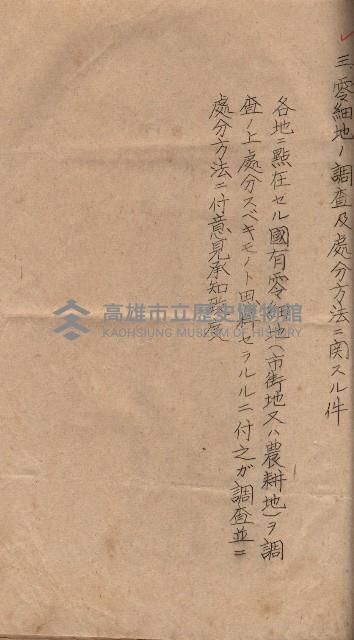 三、零細地ノ調査及處分方法ニ関スル件
各地ニ點在セル國有零細地(市街地又ハ農耕地)ヲ調
査ノ上處分スベキモノト思料セラルルニ付之ガ調査並ニ
處分方法ニ付意見承知致度
高雄市立歷史博物館
KAOHSIUNG MUSEUM OF HISTORY